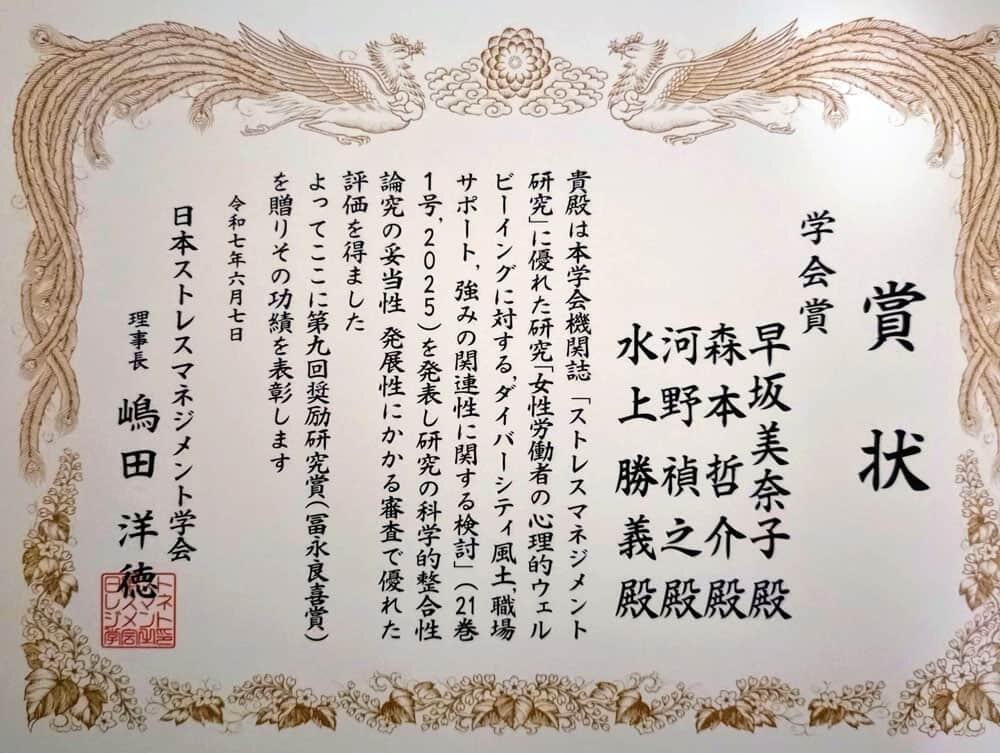 賞状
学会賞
早坂美奈子殿
森本哲介殿
河野禎之殿
水上勝義殿
貴殿は本学会機関誌「ストレスマネジメント
研究」に優れた研究「女性労働者の心理的ウェル
ビーイングに対する,ダイバーシティ風土,職場
サポート,強みの関連性に関する検討」(21巻
1号,2025)を発表し研究の科学的整合性
論究の妥当性 発展性にかかる審査で優れた
評価を得ました
よってここに第九回奨励研究賞(冨永良喜賞)
を贈りその功績を表彰します
令和七年六月七日
日本ストレスマネジメント学会
理事長 嶋田洋徳